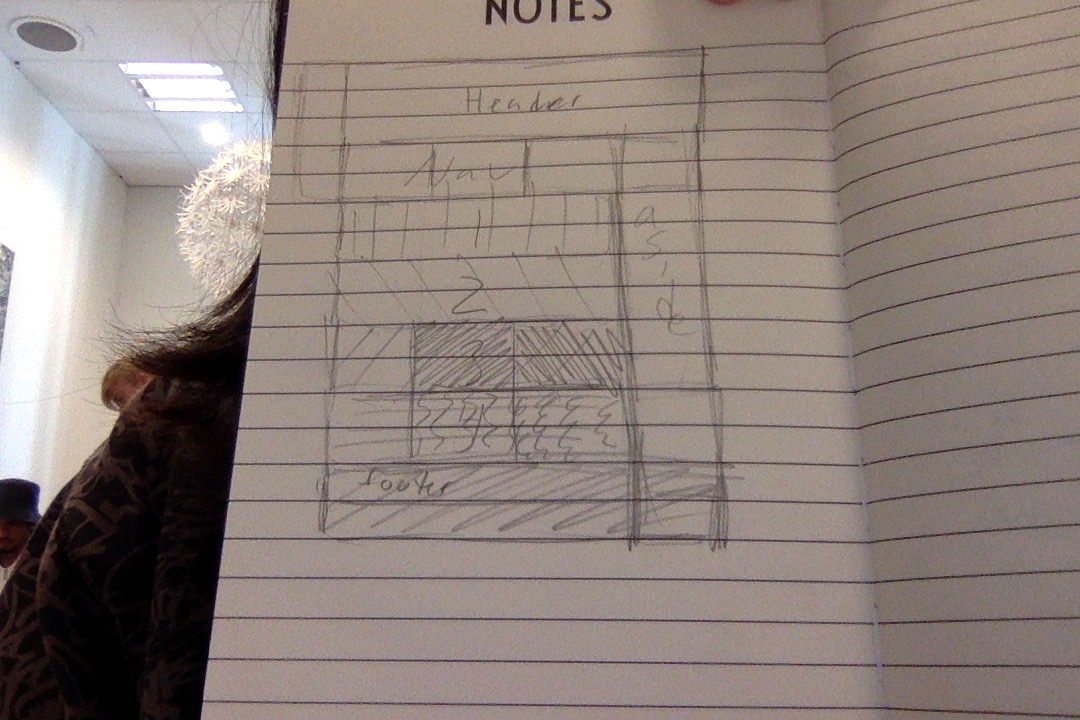 NOTES
Header
Nav
1
2
aside
3
4
footer